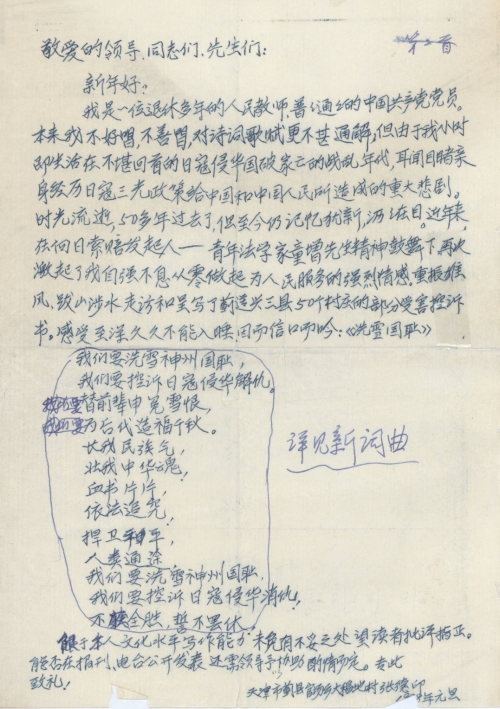 第2首
敬爱的领导、同志们、先生们:
新年好。
我是一位退休多年的人民教师,普普通通的中国共产党党员。
本来我不好唱,不善唱,对诗词歌赋更不甚通解,但由于我小时
即生活在不堪回首的日寇侵华国破家亡的战乱年代,耳闻目睹亲
身经历日寇三光政策给中国和中国人民所造成的重大悲剧。
时光流逝,50多年过去了,但至今仍记忆犹新,历历在目。近年来,
在向日索赔发起人——青年法学家童增先生精神鼓舞下,再次
激起了我自强不息从零做起为人民服务的强烈情感。重振雄
风、跋山涉水走访和呈写了蓟遵兴三县50个村庄的部分受害控诉
书。感受至深久久不能入睡,因而信口而吟:《洗雪国耻》
我们要洗雪神州国耻,
我们要控诉日寇侵华解仇。
我们要替前辈申冤雪恨,
我们要为后代造福千秋。
长我民族气,
壮我中华魂,
血书片片,
依法追究!
捍卫和平,
人类通途
我们要洗雪神州国耻,
我们要控诉日寇侵华消仇!
不获全胜,誓不罢休!
详见新词曲
限于本人文化水平写作能力 未免有不妥之处 望读者批评指正。
能否在报刊、电台公开发表 还需领导予协助酌情而定。专此
致礼!
天津市蓟县 村 张德印
年元旦